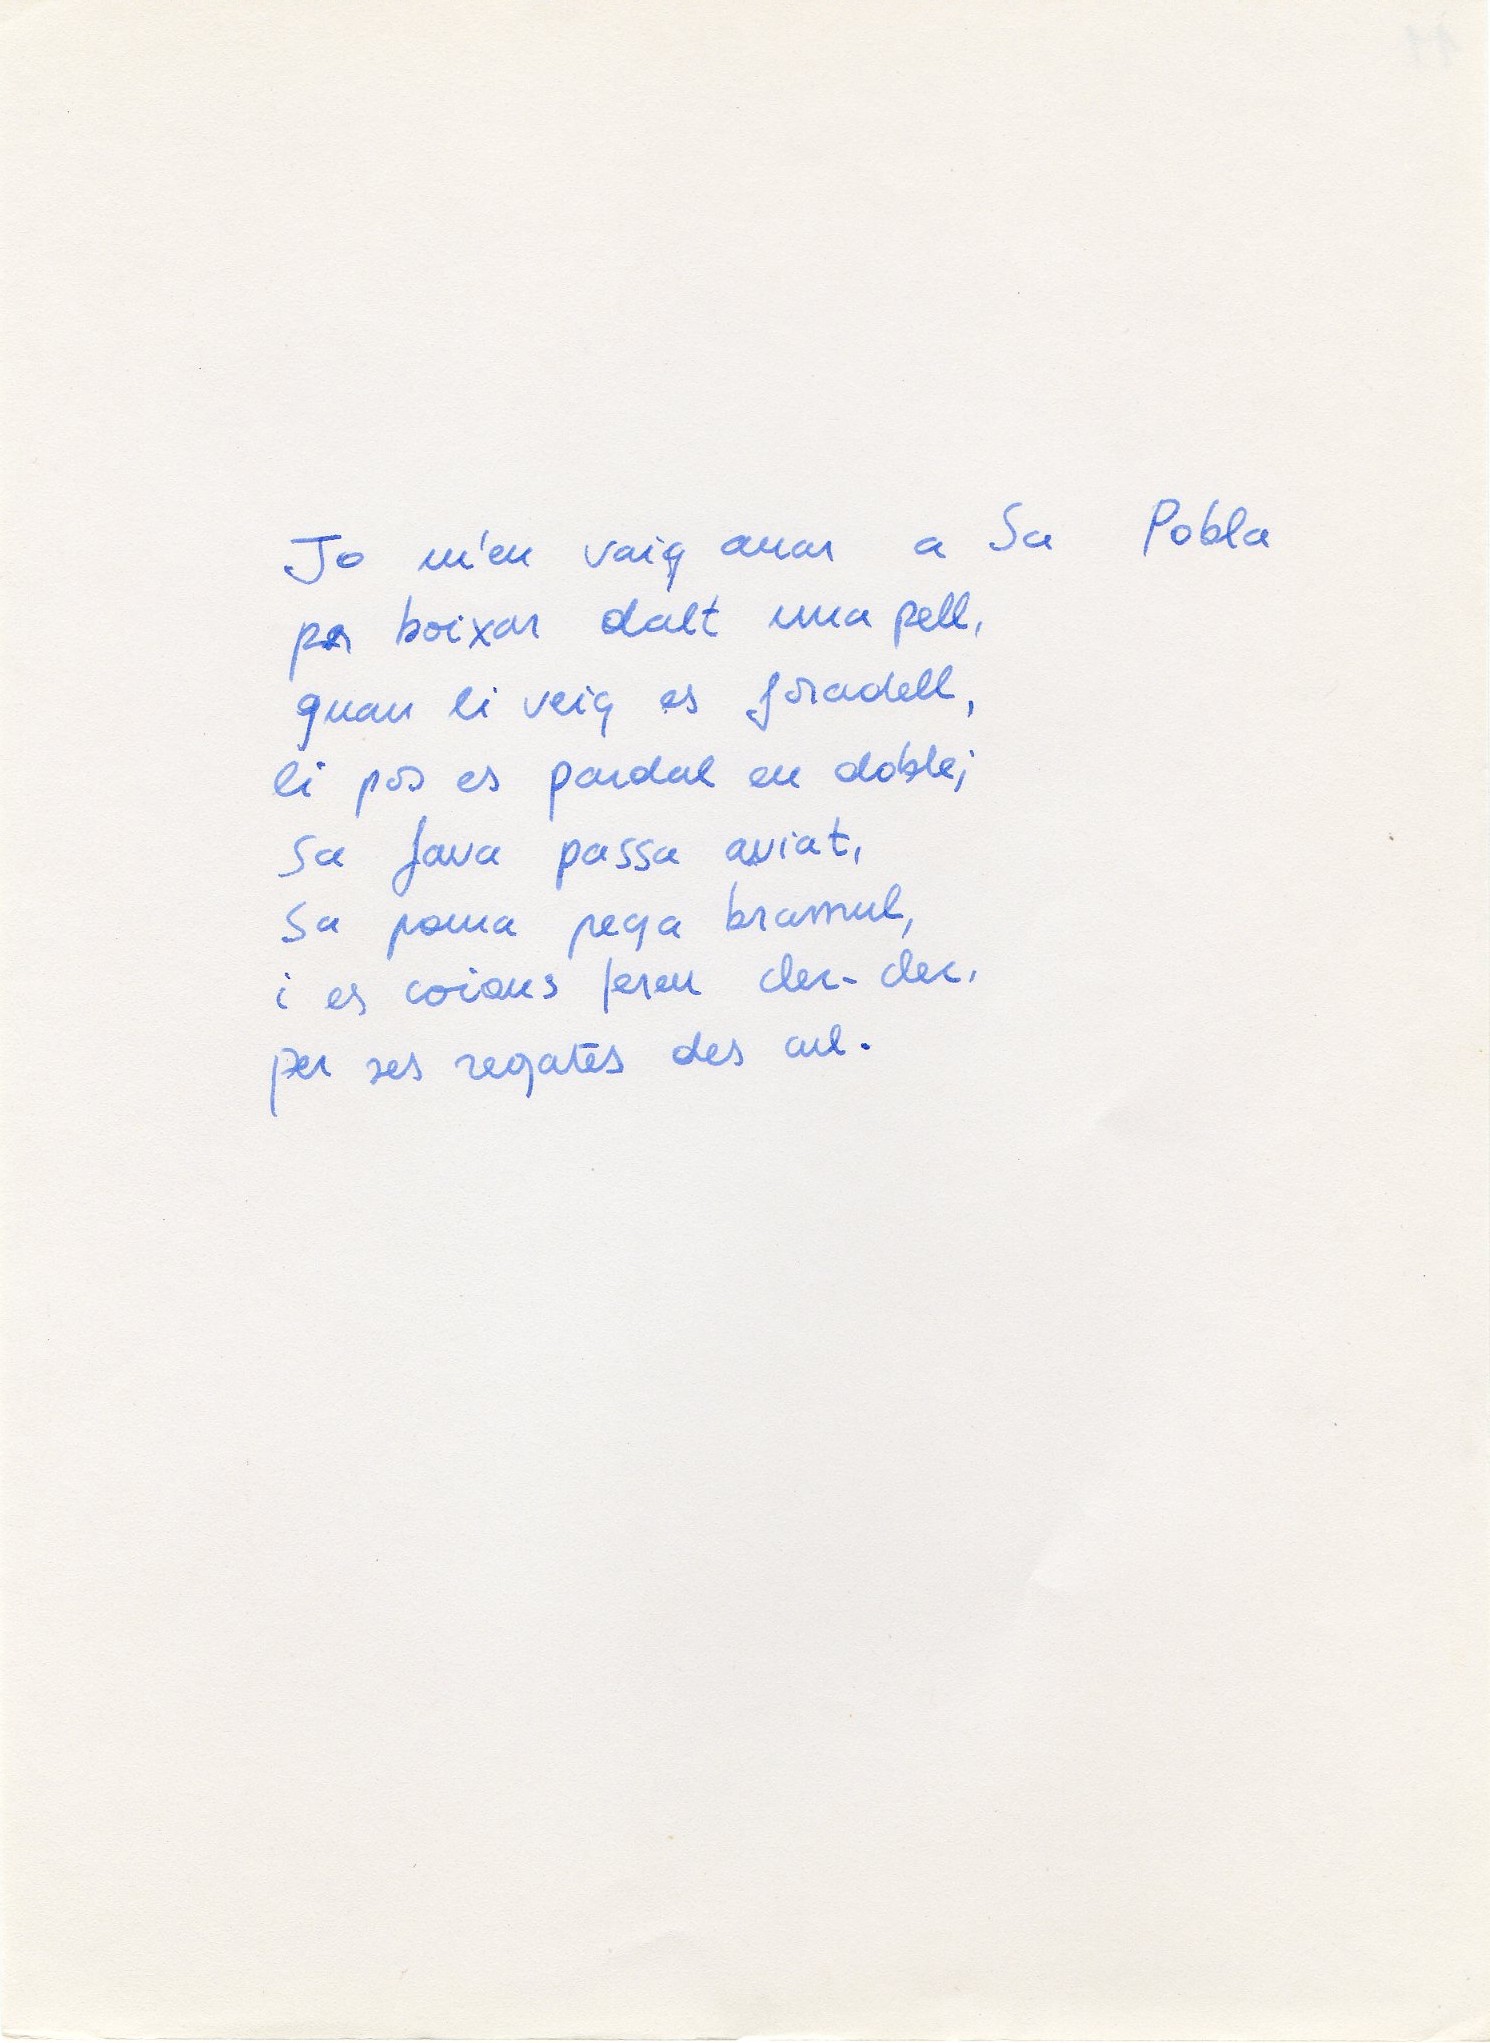 Jo m'en vaig anar a Sa Pobla
per boixar dalt una pell,
quan li veig es foradell,
li pos es pardal en doble;
sa fava passa aviat,
sa poma pega bramul,
i es coions feren clec-clec.
per ses regates des cul.